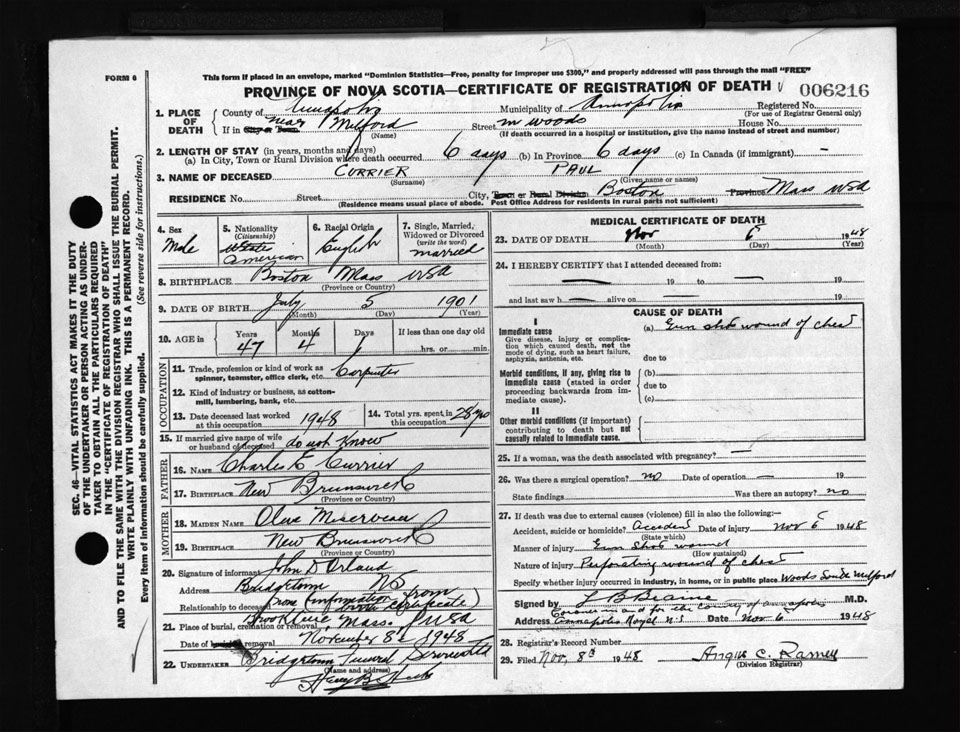 FORM 6
This form if placed in an envelope, marked "Dominion Statistics—Free, penalty for improper use $300," and properly addressed will pass through the mail "FREE"
PROVINCE OF NOVA SCOTIA—CERTIFICATE OF REGISTRATION OF DEATH 006216
1. PLACE OF DEATH
County of Annapolis Municipality of Annapolis Registered No.
(For use of Registrar General only)
If in City or Town near Milford Street in woods House No.
(Name) (If death occurred in a hospital or institution, give the name instead of street and number)
2. LENGTH OF STAY (in years, months and days)
(a) In City, Town or Rural Division where death occurred 6 days (b) In Province 6 days (c) In Canada (if immigrant) —
3. NAME OF DECEASED CURRIER PAUL
(Surname) (Given name or names)
RESIDENCE No. Street City, Town or Rural Division Boston Province Mass USA
(Residence means usual place of abode. Post Office Address for residents in rural parts not sufficient)
4. Sex
Male
5. Nationality
(Citizenship)
American
6. Racial Origin
English
7. Single, Married, Widowed or Divorced
(write the word)
married
8. BIRTHPLACE Boston Mass USA
(Province or Country)
9. DATE OF BIRTH July 5 1901
(Month) (Day) (Year)
10. AGE in
Years Months Days If less than one day old
47 4 1 hrs. or min.
OCCUPATION
11. Trade, profession or kind of work as
spinner, teamster, office clerk, etc. Carpenter
12. Kind of industry or business, as cotton-
mill, lumbering, bank, etc.
13. Date deceased last worked
at this occupation 1948
14. Total yrs. spent in
this occupation 28 yrs
15. If married give name of wife
or husband of deceased do not Know
FATHER
16. NAME Charles E Currier
17. BIRTHPLACE New Brunswick
(Province or Country)
MOTHER
18. MAIDEN NAME Olive
19. BIRTHPLACE New Brunswick
(Province or Country)
20. Signature of informant John D Orlando
Address Bridgetown NS
Relationship to deceased none (information from
birth certificate)
21. Place of burial, cremation or removal Brookline Mass. USA
Date of burial or removal November 8th 1948
22. UNDERTAKER Bridgetown Funeral
(Name and address)
MEDICAL CERTIFICATE OF DEATH
23. DATE OF DEATH Nov 6 1948
(Month) (Day) (Year)
24. I HEREBY CERTIFY that I attended deceased from:
— 19 to — 19
and last saw h — alive on — 19
CAUSE OF DEATH
I
Immediate cause (a) Gun shot wound of chest
Give disease, injury or complica-
tion which caused death, not the
mode of dying, such as heart failure,
asphyxia, asthenia, etc. due to
Morbid conditions, if any, giving rise to (b)
immediate cause (stated in order due to
proceeding backwards from im-
mediate cause). (c)
II
Other morbid conditions (if important)
contributing to death but not
causally related to immediate cause.
25. If a woman, was the death associated with pregnancy? —
26. Was there a surgical operation? no Date of operation — 19
State findings Was there an autopsy? no
27. If death was due to external causes (violence) fill in also the following:—
Accident, suicide or homicide? Accident Date of injury Nov 6 1948
(State which)
Manner of injury Gun Shot wound
(How sustained)
Nature of injury Perforating wound of chest
Specify whether injury occurred in industry, in home, or in public place Woods South Milford
Signed by L B Braine M.D.
Coroner in and for the County of Annapolis
Address Annapolis Royal N.S Date Nov 6 1948
28. Registrar's Record Number
29. Filed Nov, 8th 1948 Angus C.
(Division Registrar)
SEC. 46—VITAL STATISTICS ACT MAKES IT THE DUTY
OF THE UNDERTAKER OR PERSON ACTING AS UNDER-
TAKER TO OBTAIN ALL THE PARTICULARS REQUIRED
IN THE "CERTIFICATE OF REGISTRATION OF DEATH"
AND TO FILE THE SAME WITH THE DIVISION REGISTRAR WHO SHALL ISSUE THE BURIAL PERMIT.
WRITE PLAINLY WITH UNFADING INK. THIS IS A PERMANENT RECORD.
Every item of information should be carefully supplied. (See reverse side for instructions.)